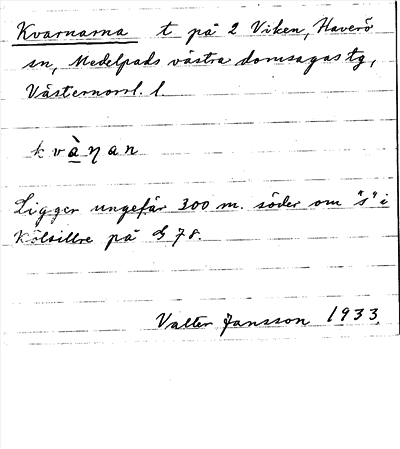 Kvarnarna t på 2 Viken, Haverö
sn, Medelpads västra domsagas tg,
Västernorrl. l
kvὰηan
Ligger ungefär 300 m. söder om "s" i
Kölsillre på G 78.
Valter Jansson 1933.